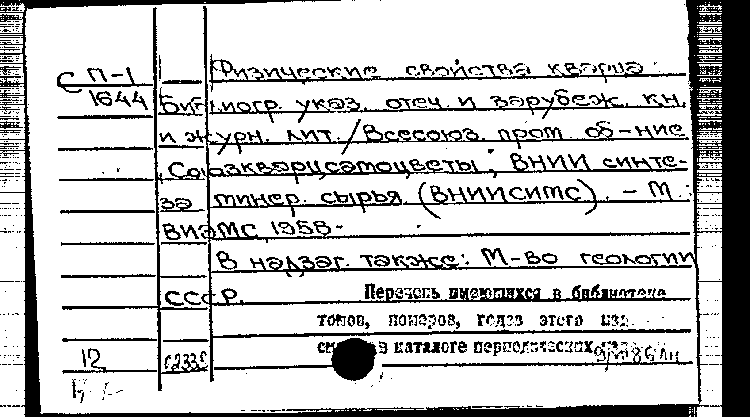 С П-1 Физические свойства кварца
1644 Библиогр. указ. отеч. и зарубеж. кн.
и журн. лит. / Всесоюз. пром. об-ние
"Союзкварцсамоцветы", ВНИИ синте-
за минер. сырья (ВНИИСИМС). - М.:
ВИЭМС, 1958-
В надзаг. также: М-во геологии
СССР.
Перечень имеющихся в библиотеке
томов, номеров, годов этого изд.
в каталоге периодических
12